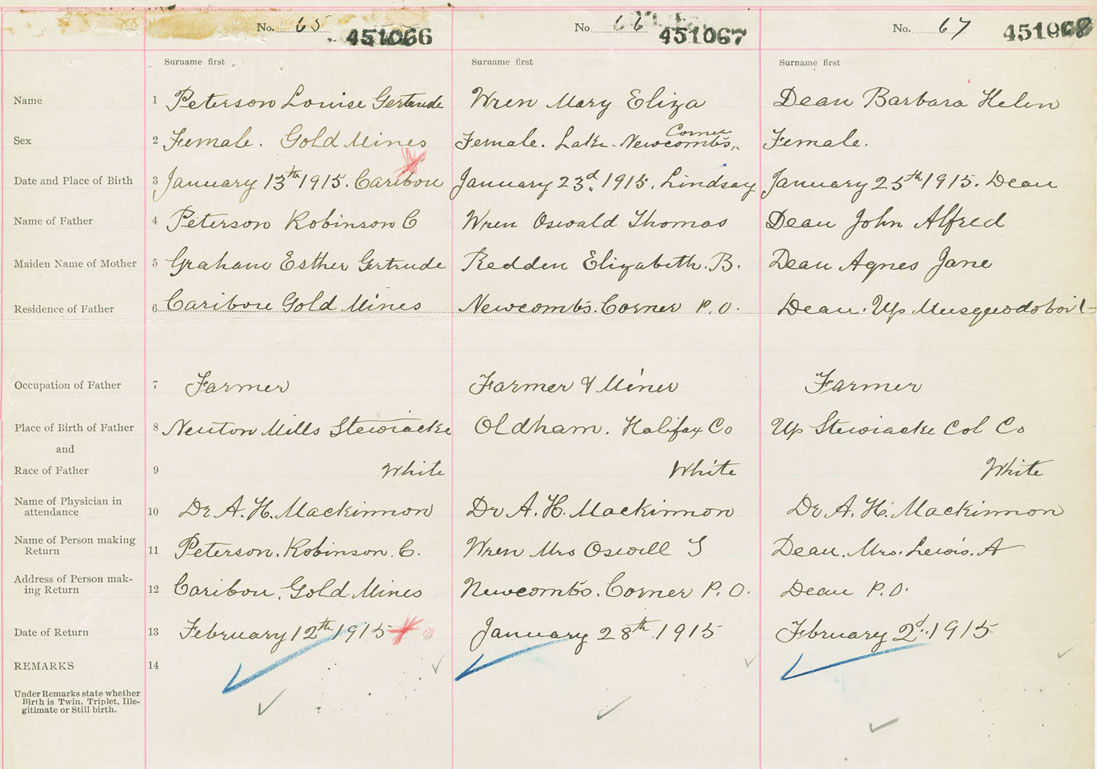 No. 65 451066 No 66 451067 No. 67 451068
Surname first Surname first Surname first
Name 1 Peterson Louise Gertrude Wren Mary Eliza Dean Barbara Helen
Corner
Sex 2 Female. Gold Mines Female. Lake. Newcombs,, Female.
Date and Place of Birth 3 January 13th 1915. Caribou January 23d. 1915. Lindsay January 25th 1915. Dean
Name of Father 4 Peterson Robinson C Wren Oswald Thomas Dean John Alfred
Maiden Name of Mother 5 Graham Esther Gertrude Redden Elizabeth. B. Dean Agnes Jane
Residence of Father 6 Caribou Gold Mines Newcombs. Corner P.O. Dean. Up Musquodoboit
Occupation of Father 7 Farmer Farmer & Miner Farmer
Place of Birth of Father 8 Newton Mills Stewiacke Oldham. Halifax Co Up Stewiacke Col Co
and
Race of Father 9 White White White
Name of Physician in
attendance 10 Dr A. H. Mackinnon Dr A. H. Mackinnon Dr A. H. Mackinnon
Name of Person making
Return 11 Peterson. Robinson. C. Wren Mrs Oswell T Dean. Mrs. Lewis. A
Address of Person mak-
ing Return 12 Caribou. Gold Mines Newcombs. Corner P.O. Dean P.O.
Date of Return 13 February 12th 1915 January 28th 1915 February 2d. 1915
REMARKS 14
Under Remarks state whether
Birth is Twin, Triplet, Ille-
gitimate or Still birth.